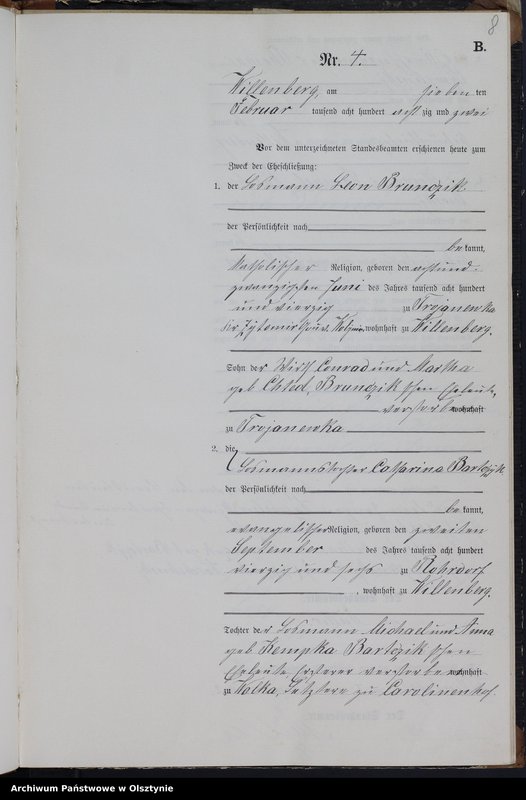 8
B.
Nr. 4.
Willenberg, am sieben ten
Februar tausend acht hundert achtzig und zwei
Vor dem unterzeichneten Standesbeamten erschienen heute zum
Zweck der Eheschließung:
1. der Losmann Leon Brunczik
der Persönlichkeit nach
be kannt,
katholischer Religion, geboren den achtund-
zwanzigsten Juni des Jahres tausend acht hundert
und vierzig zu Trojanewka
Kr. Zytomir Gouv. wohnhaft zu Willenberg.
Sohn der Wirth Conrad und Martha
geb Chled, Brunczik'schen Eheleute,
verstorben wohnhaft
zu Trojanewka
2. die
Losmannstochter Catharina Bartczik
der Persönlichkeit nach
be kannt,
evangelischer Religion, geboren den zweiten
September des Jahres tausend acht hundert
vierzig und sechs zu Rohrdorf
, wohnhaft zu Willenberg.
Tochter der Losmann Michael und Anna
geb Kempka Bartczik'schen
Eheleute Ersterer verstorben wohnhaft
zu Kolka, Letztere zu Carolinenhof.
Archiwum Państwowe w Olsztynie